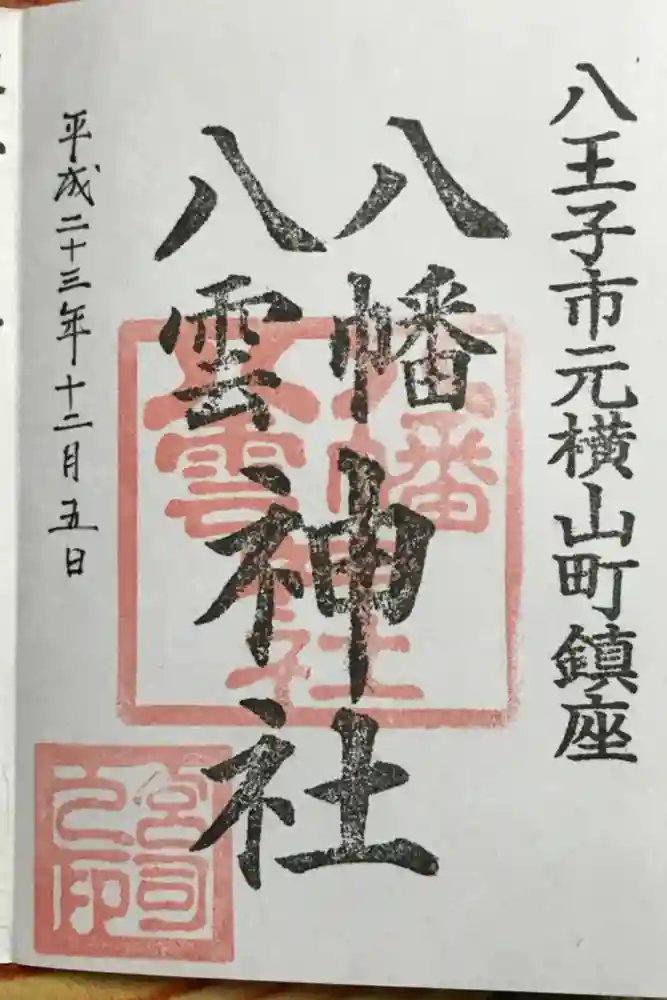 八王子市元横山町鎮座
八幡
八雲
神社
平成二十三年十二月五日
八幡
八雲
神社
宮司
之印